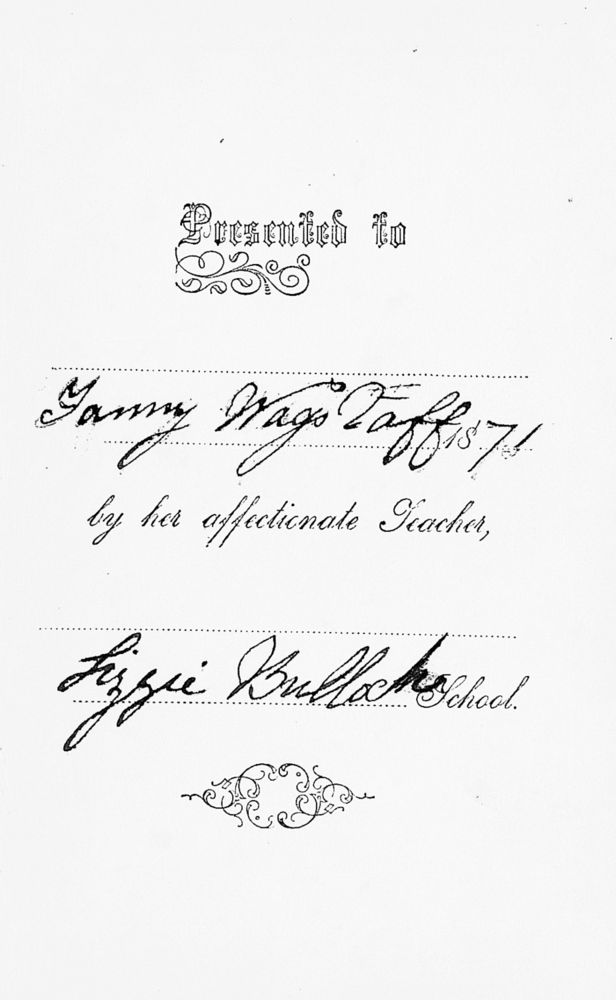 Presented to
Fanny Wagstaff 1871
by her affectionate Teacher,
Lizzie Bullock
School.